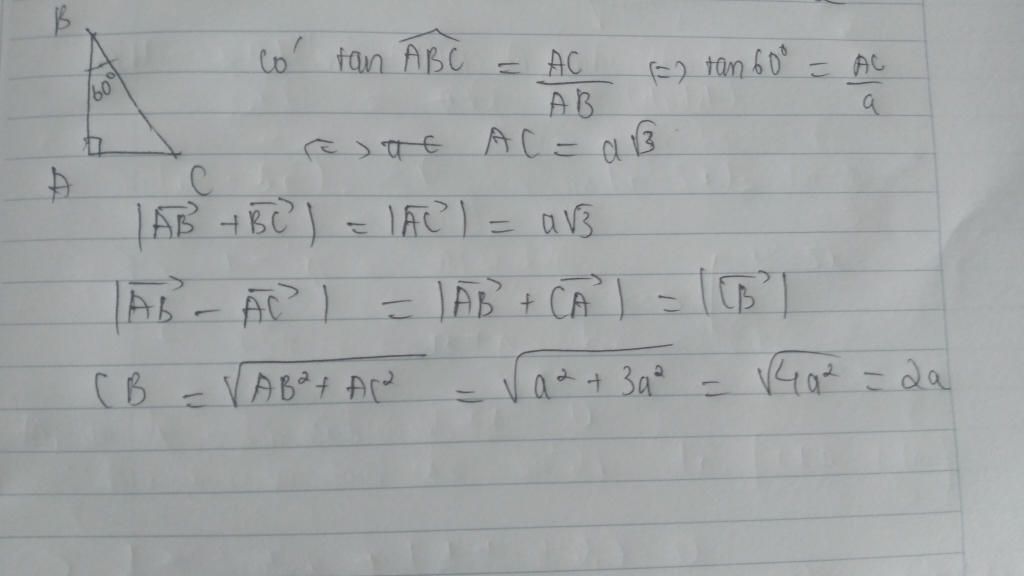 B
có tan \widehat{ABC} = \frac{AC}{AB} (=) tan 60° = \frac{AC}{a}
60°
(=) AC = a√3
A C
|\overrightarrow{AB} + \overrightarrow{BC}| = |\overrightarrow{AC}| = a√3
|\overrightarrow{AB} - \overrightarrow{AC}| = |\overrightarrow{AB} + \overrightarrow{CA}| = |\overrightarrow{CB}|
CB = \sqrt{AB² + AC²} = \sqrt{a² + 3a²} = \sqrt{4a²} = 2a